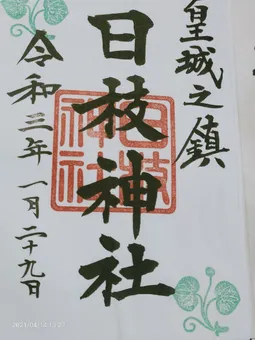 皇城之鎮
日枝神社
日枝神社
令和三年一月二十九日